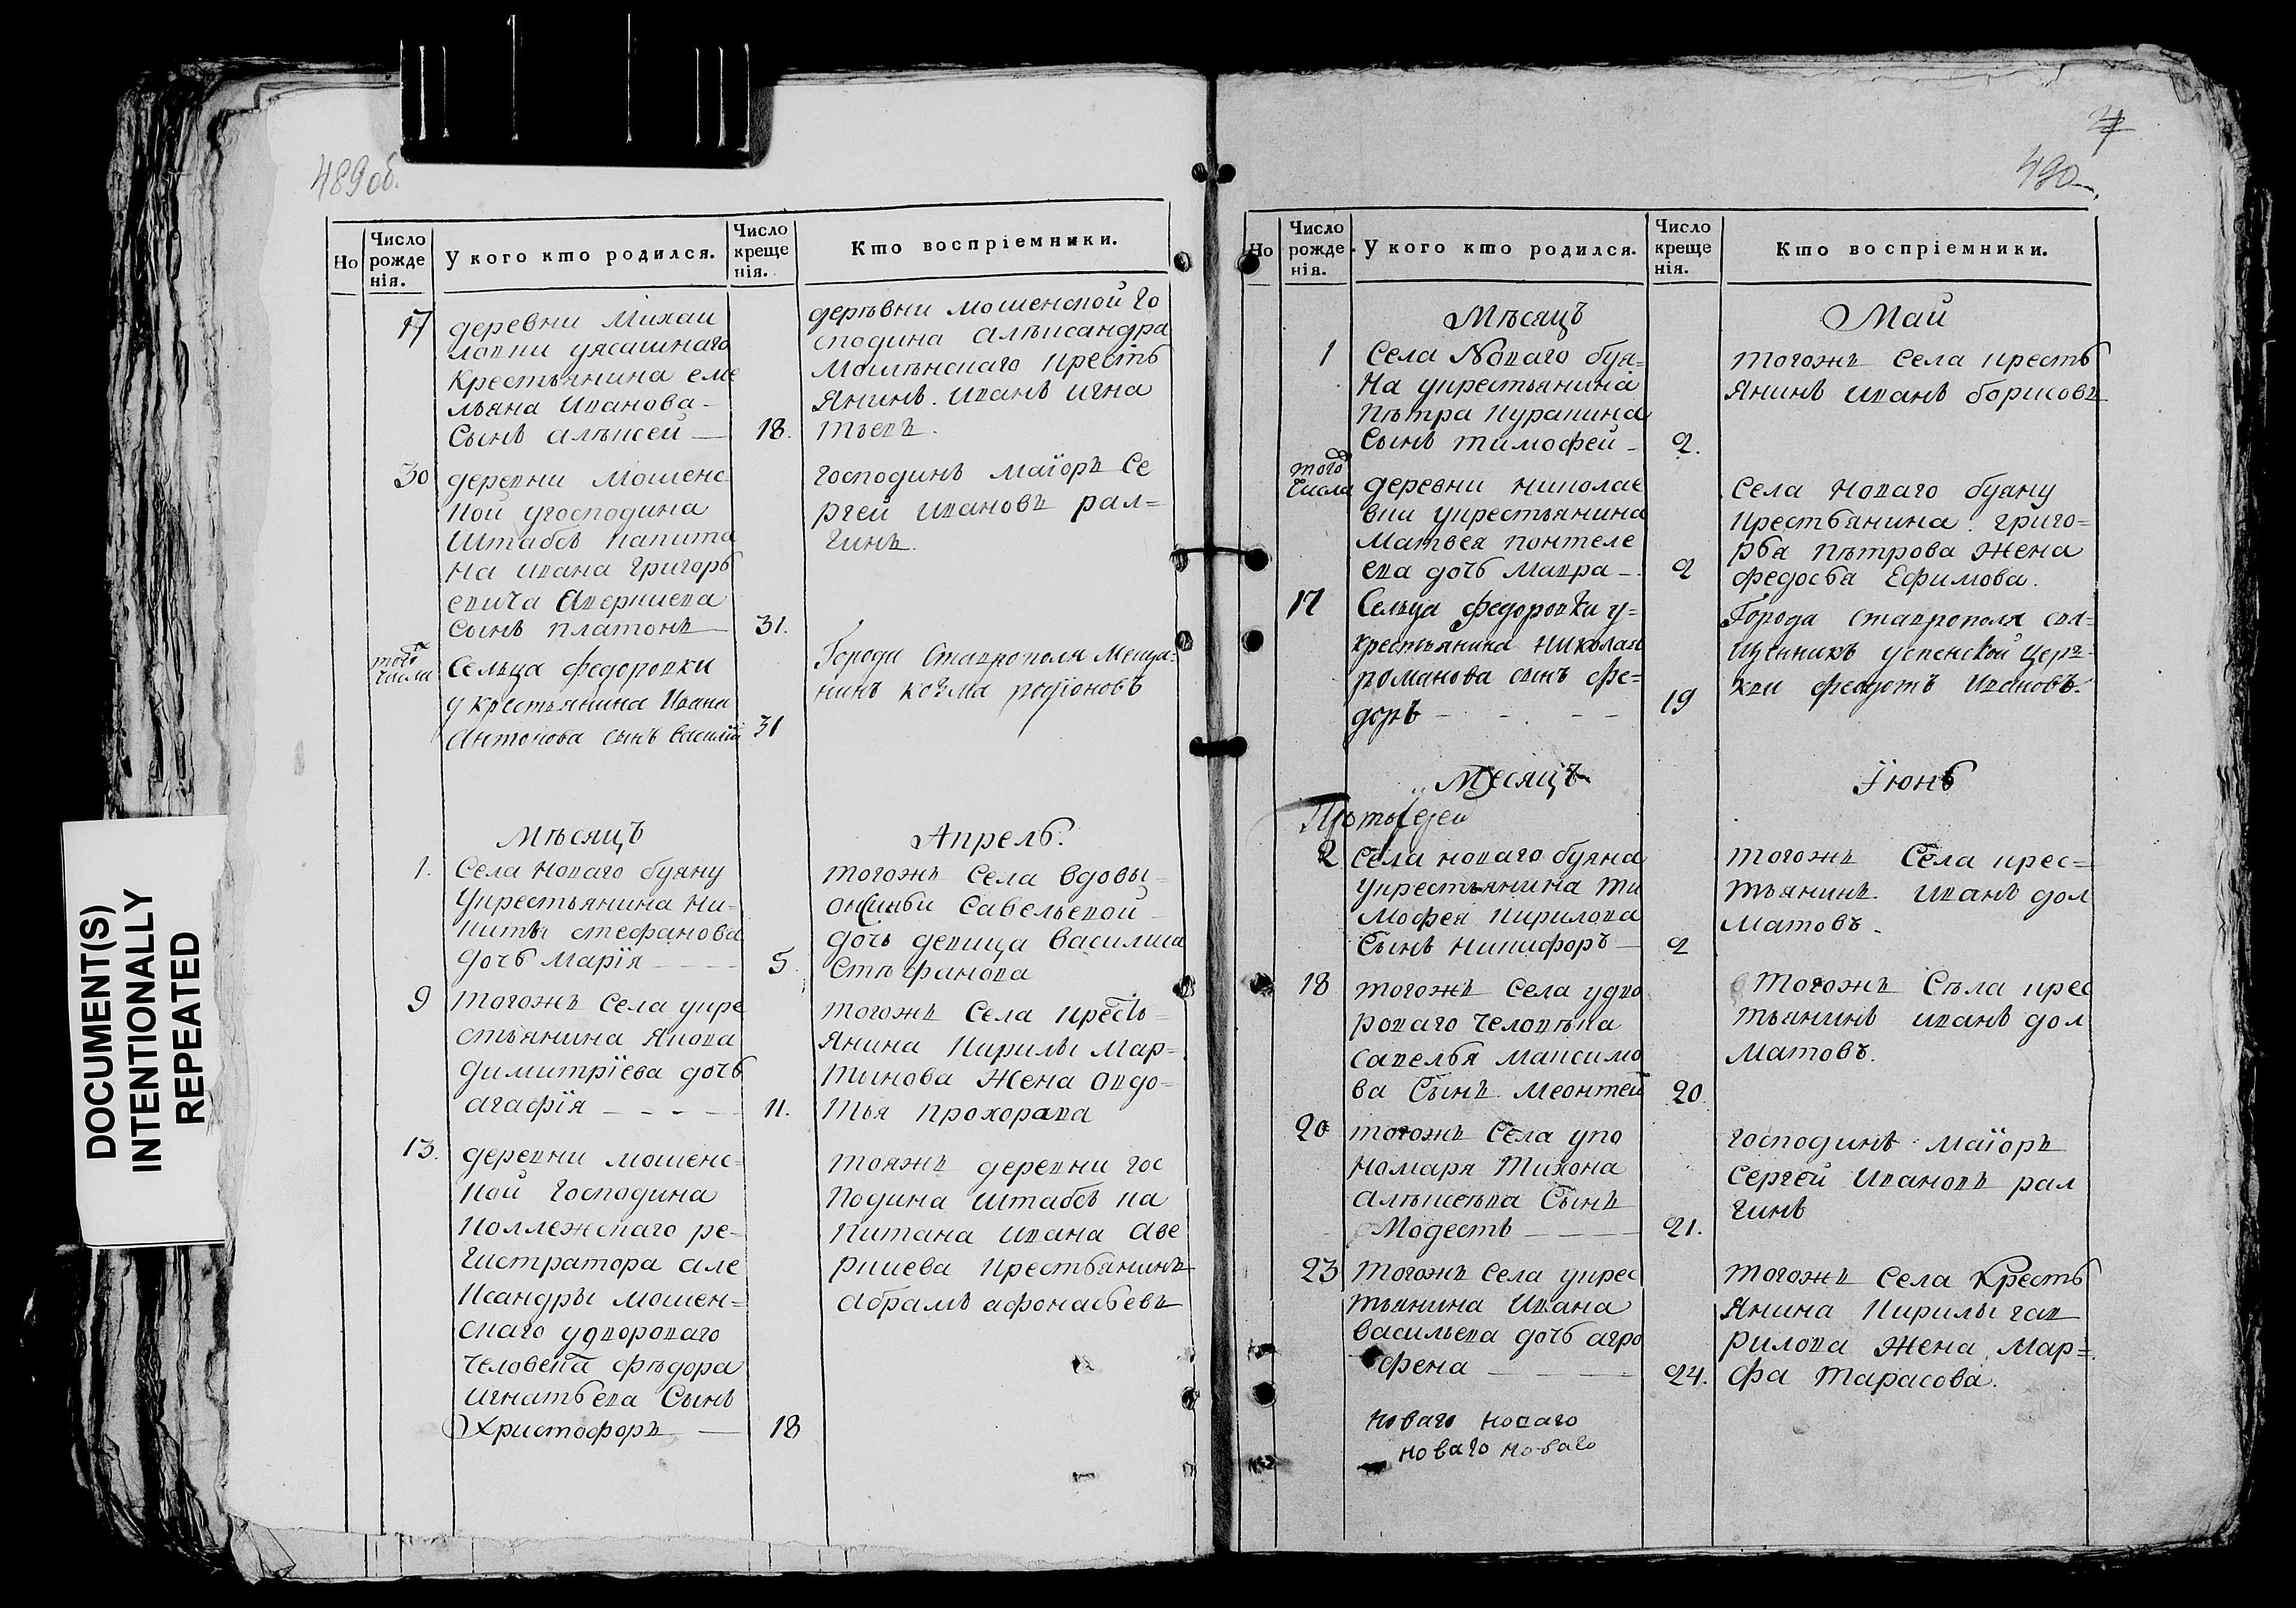 489 об.
Но
Число рожде нія.
У кого кто родился.
Число креще нія.
Кто воспріемники.
17
деревни Михаи
ловки уясашнаго
Крестьянина еме
льяна Иванова
Сынъ алѣксей 18.
деревни мошенской го
сподина алѣксандра
Мошѣнскаго кресть
янинъ Иванъ игна
тьевъ.
30
деревни Мошенс
кой угосподина
Штабсъ капита
на Ивана Григорь
евича Аверкиева
Сынъ платонъ 31.
господинъ маіоръ Се
ргей ивановъ рал=
гинъ.
того числа
Сельца федоровки
у крестьянина Ивана
Антонова сынъ василій 31
Города Ставрополя Меща=
нинъ козма родіоновъ
Мѣсяцъ Апрель.
1.
Села новаго буяну
укрестьянина ни=
киты стефанова
дочь Марія 5
тогожъ села вдовы
савельевой
дочь девица василиса
стѣфанова
9
тогожъ села укре
стьянина якова
димитріева дочь
агафія 11.
тогожъ села кресть=
янина кирилы мар=
тынова жена овдо=
тья прохорова
13.
деревни мошенс=
кой господина
коллежскаго ре=
гистратора але
ксандры мошен=
скаго удвороваго
человека фѣдора
игнатьева Сынъ
Христофоръ 18
тояжъ деревни гос
подина штабсъ ка
питана ивана аве
ркиева крестьянинъ
абрамъ афонасьевъ
490
Но
Число рожде нія.
У кого кто родился.
Число креще нія.
Кто воспріемники.
Мѣсяцъ Май
1
Села Новаго буя=
на укрестьянина
Пѣтра куракина
Сынъ тимофей 2.
тогожъ села кресть
янинъ иванъ борисовъ
того числа
деревни николае
вки укрестьянина
матвея понтеле
ева дочь мавра 2
Села новаго буяну
крестьянина григо=
рья пѣтрова жена
федосья Ефимова.
17
Сельца федоровки у=
крестьянина николая
романова сынъ фе=
доръ 19
Города ставрополя свя=
щенникъ успенской церк=
кви федотъ ивановъ.
Месяцъ Іюнь
2
Села новаго буяна
укрестьянина ти
мофея кирилова
Сынъ никифоръ 2
тогожъ Села крес=
тьянинъ иванъ дол
матовъ.
18
тогожъ села удво
роваго человѣка
савелья максимо
ва Сынъ Меонтей 20
Тогожъ Сѣла крес
тьянинъ иванъ дол
матовъ.
20
тогожъ села упо
номаря Тихона
алѣксѣева Сынъ
Модестъ 21.
господинъ маіоръ
Сергей ивановъ рал
гинъ
23
тогожъ села укрес
тьянина ивана
васильева дочь агро
фена 24.
тогожъ села кресть
янина кирилы гав
рилова жена мар=
фа тарасова.
новаго новаго
новаго новаго
DOCUMENT(S)
INTENTIONALLY
REPEATED